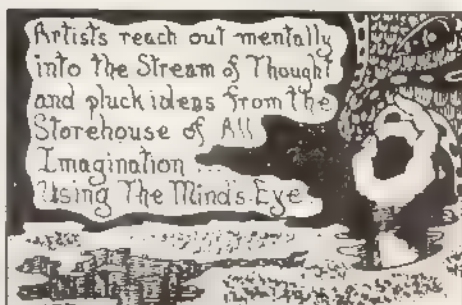 Artists reach out mentally
into the Stream of Thought
and pluck ideas from the
Storehouse of All
Imagination ...
Using The Mind's Eye.